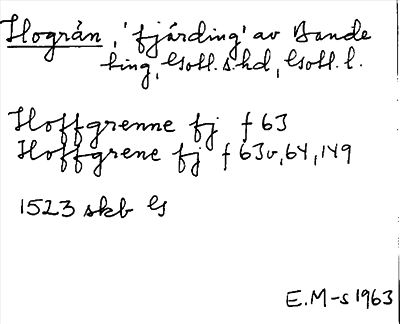 Hogrän, 'fjärding' av Bande
ting, Gotl. s. hd, Gotl. l.
Hoffgrenne fj f 63
Hoffgrene fj f 63v, 64, 149
1523 skb G
E.M-s 1963